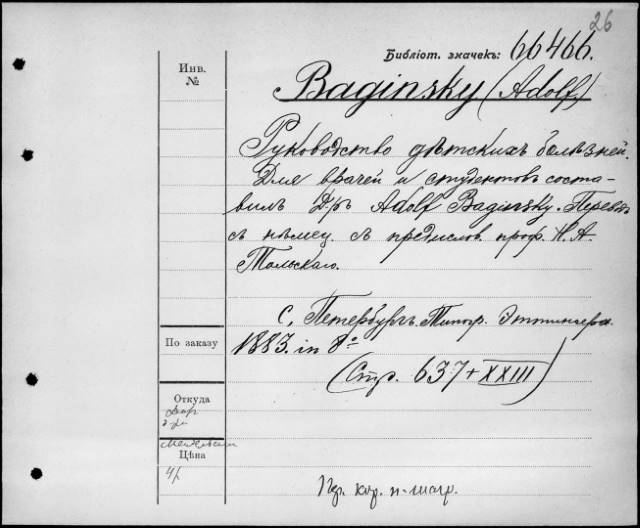 26
Библіот. значекъ: 66466.
Инв.
№
Baginsky (Adolf.)
Руководство дѣтскихъ болѣзней.
Для врачей и студентовъ соста-
вилъ Д-ръ Adolf Baginsky. Перев.
съ нѣмец. съ предислов. проф. Н. А.
Тольскаго.
С. Петербургъ. Типогр. Эттингера.
По заказу
1883. in 8º
(Стр. 637 + XXIII)
Откуда
Цѣна
4 р
Пер. кор. п-шагр.